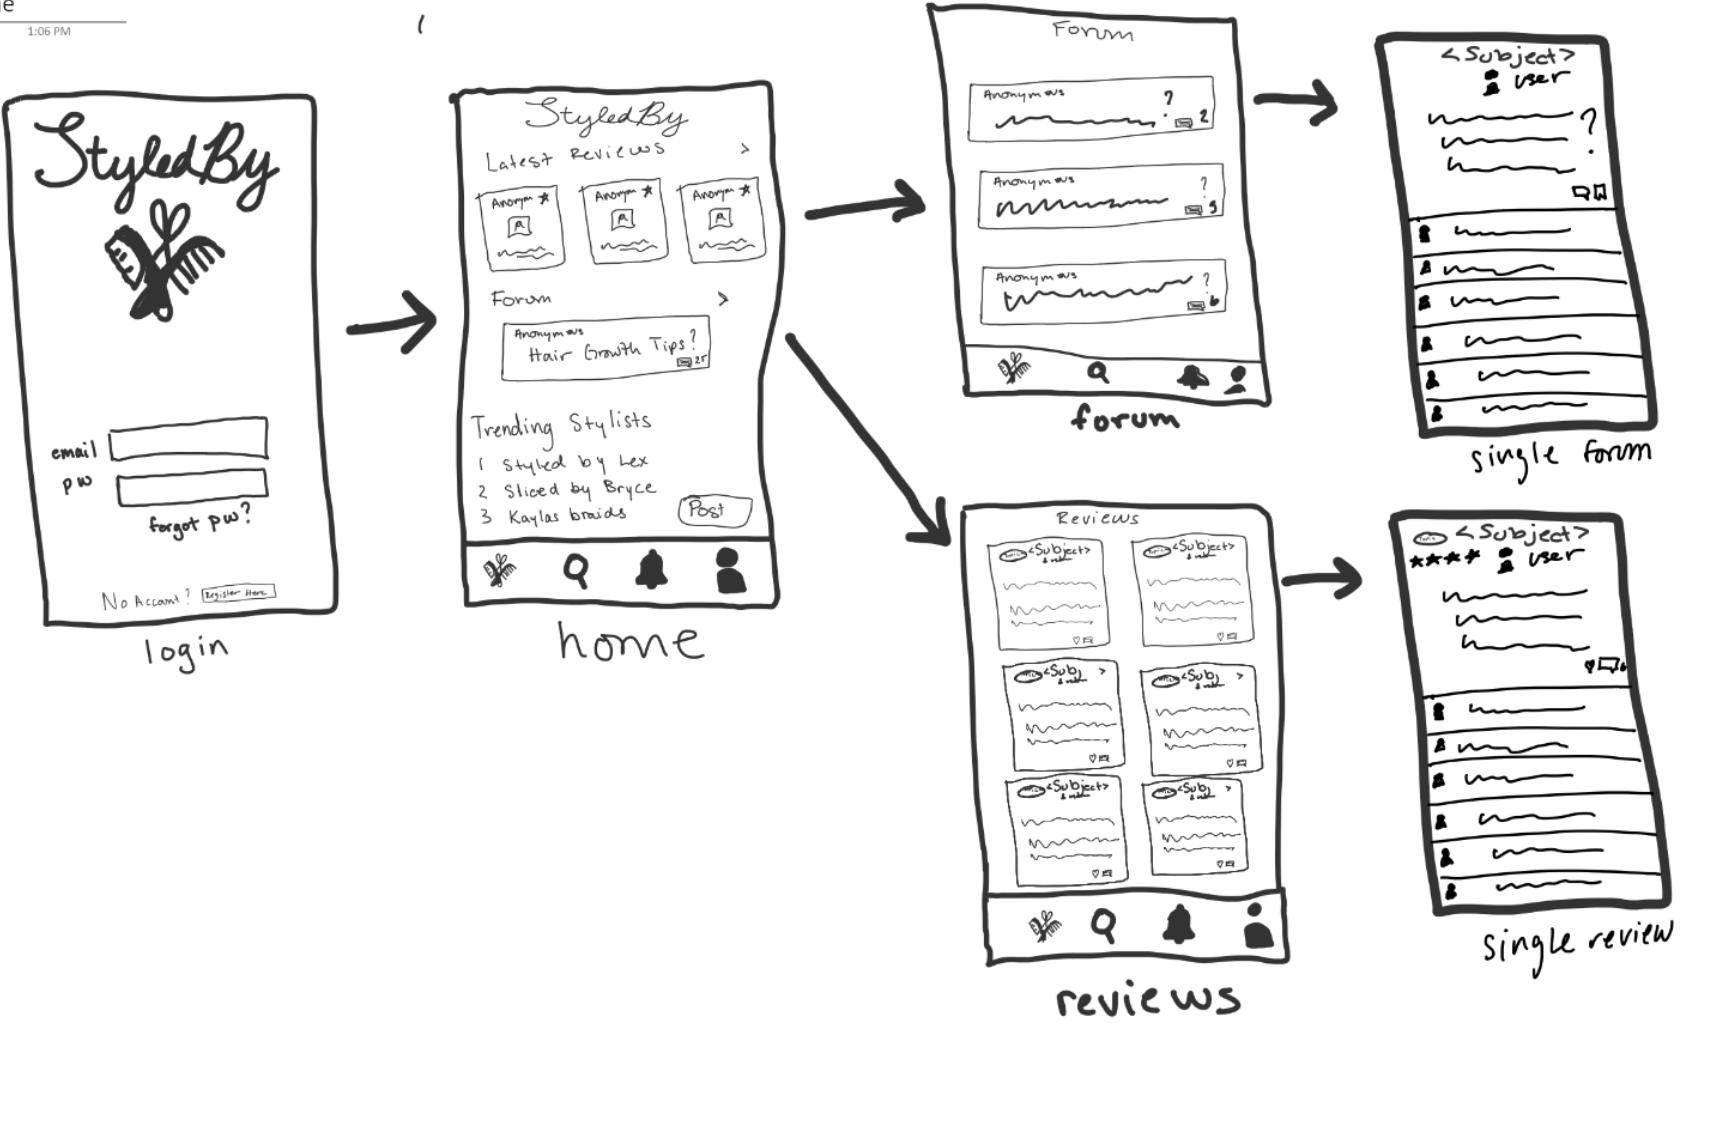 1:06 PM
StyledBy
email
pw
forgot pw?
No Account? Register Here
login
StyledBy
Latest Reviews >
Anonym
Anonym
Anonym
Forum >
Anonymous
Hair Growth Tips?
25
Trending Stylists
1 Styled by Lex
2 Sliced by Bryce
3 Kaylas braids
Post
home
Forum
Anonymous
?
2
Anonymous
?
Anonymous
?
6
forum
<Subject>
user
?
single forum
Reviews
<Subject>
<Subject>
<Subj >
<Subj >
<Subject>
<Subj >
reviews
<Subject>
user
single review